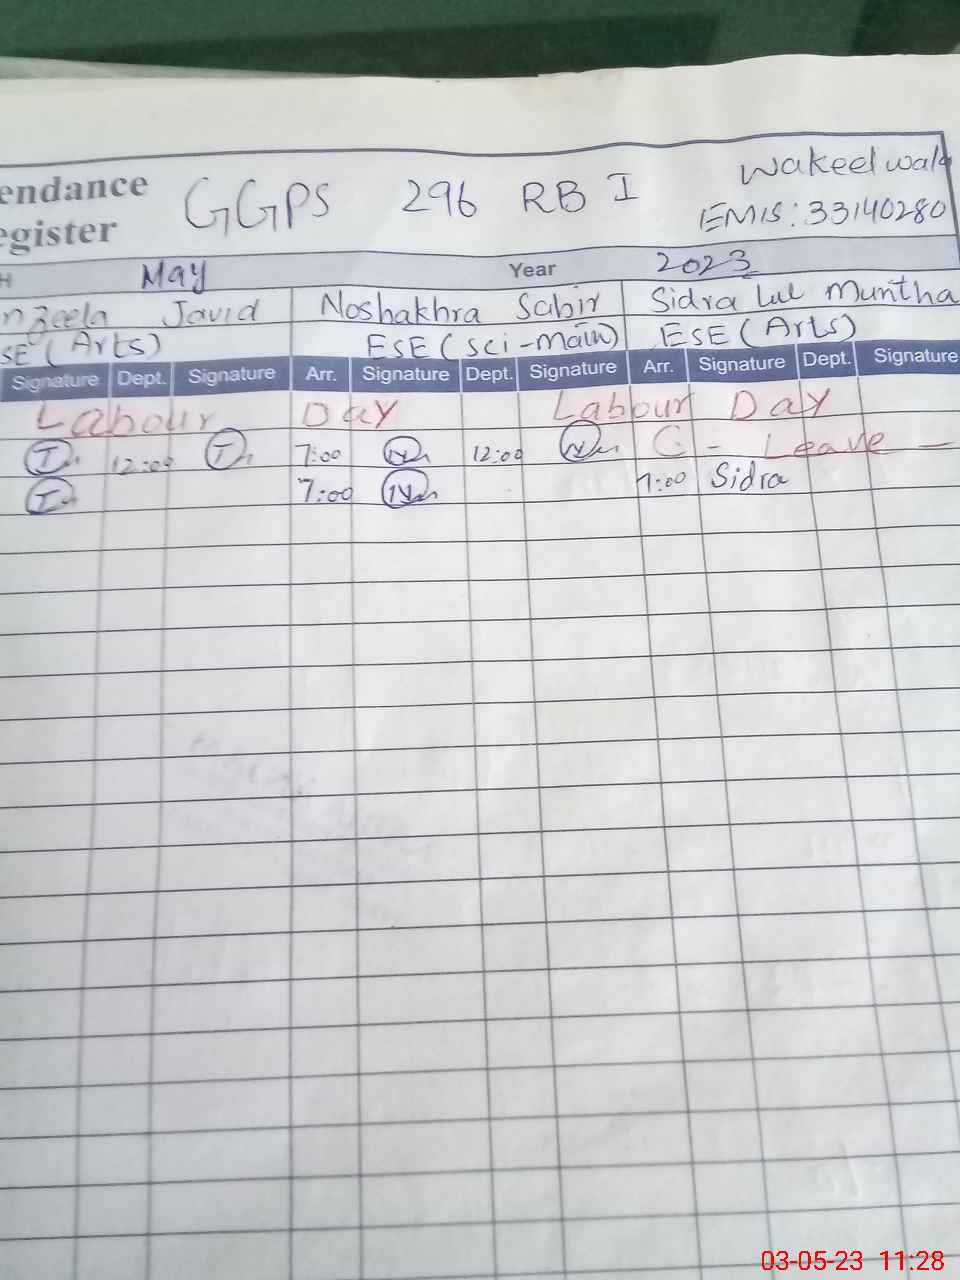 endance GGPS 296 RB I Wakeel wala
egister EMIS: 33140280
H May Year 2023
nzeela Javid Noshakhra Sabir Sidra tul Muntha
SE (Arts) ESE (sci-main) ESE (Arts)
Signature Dept. Signature Arr. Signature Dept. Signature Arr. Signature Dept. Signature
Labour Day Labour Day
T 12:00 T 7:00 N 12:00 N C - Leave -
T 7:00 N 7:00 Sidra
03-05-23 11:28